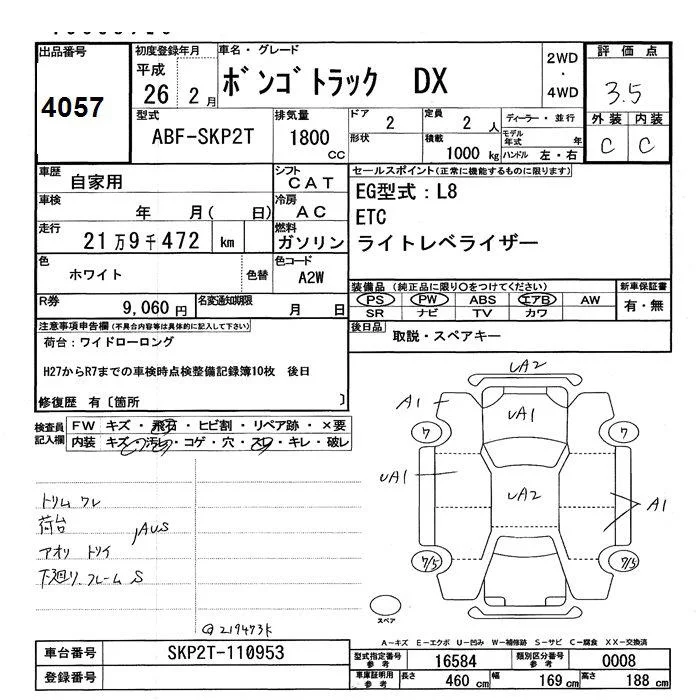 出品番号
4057
初度登録年月
平成
26 2 月
車名・グレード
ボンゴトラック DX
2WD
・
4WD
評価点
3.5
外装 内装
C C
型式
ABF-SKP2T
排気量
1800
CC
ドア
2
定員
2 人
形状
積載
1000 kg
ディーラー・並行
モデル
年式 年
ハンドル 左・右
車歴
自家用
シフト
CAT
車検
年 月( 日)
冷房
AC
走行
21万9千472 km
燃料
ガソリン
色
ホワイト
色替
色コード
A2W
R券
9,060 円
名変通知期限
月 日
セールスポイント(正常に機能するものに限ります)
EG型式:L8
ETC
ライトレベライザー
装備品(純正品に限り○をつけてください)
PS PW ABS エアB AW
SR ナビ TV カワ
新車保証書
有・無
後日品
取説・スペアキー
注意事項申告欄(不具合内容等は具体的に記入して下さい)
荷台:ワイドローロング
H27からR7までの車検時点検整備記録簿10枚 後日
修復歴 有〔箇所 〕
検査員
記入欄
FW キズ・飛石・ヒビ割・リペア跡・×要
内装 キズ・汚レ・コゲ・穴・スレ・キレ・破レ
トリム ワレ
荷台
アオリ トリイ
AUS
下廻り.フレーム S
219473k
UA2
A1
UA1
7
7
UA1
UA2
A1
7/5
7/5
スペア
A-キズ E-エクボ U-凹み W-補修跡 S-サビ C-腐食 XX-交換済
車台番号
SKP2T-110953
登録番号
型式指定番号
参考
16584
類別区分番号
参考
0008
車庫証明用
参考
長さ
460 cm
幅
169 cm
高さ
188 cm